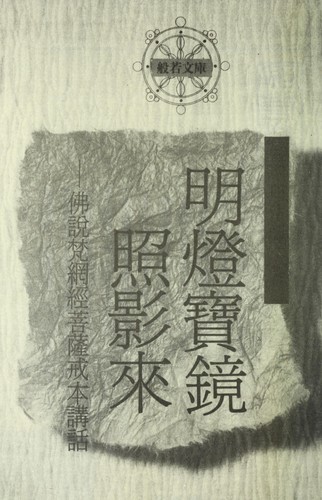 般若文庫
明燈寶鏡
照影來
─佛說梵網經菩薩戒本講話